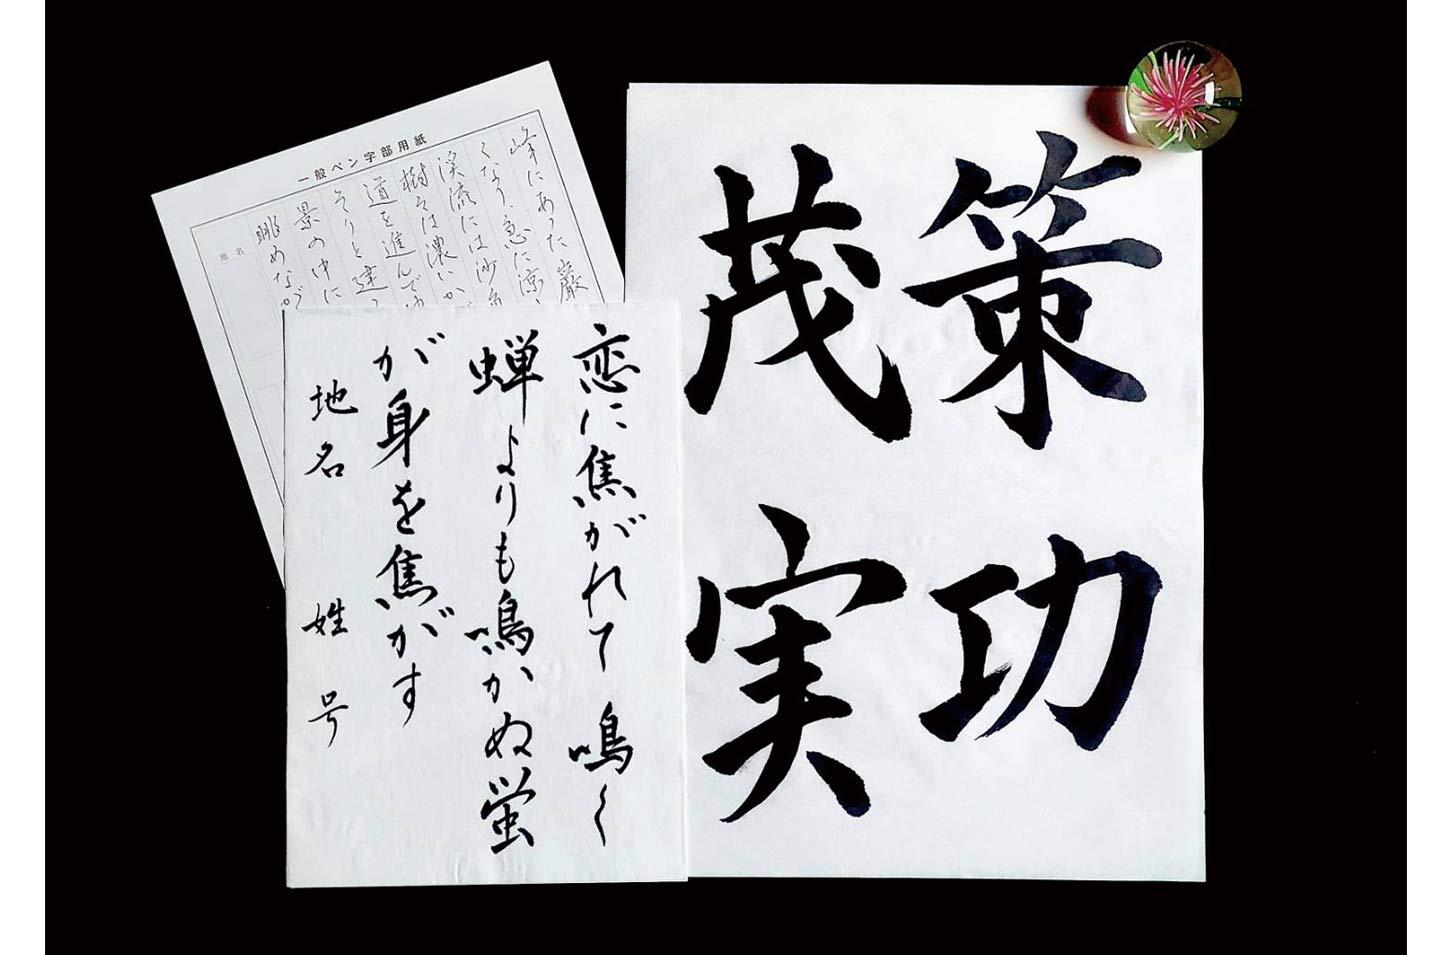 策功
茂実
恋に焦がれて鳴く
蝉よりも鳴かぬ蛍
が身を焦がす
地名 姓号
一般ペン字部用紙
峰にあった巌
くなり、急に涼
渓流には沙
樹々は濃いか
道を進んで
そりと建
景の中に
眺めなが
地名